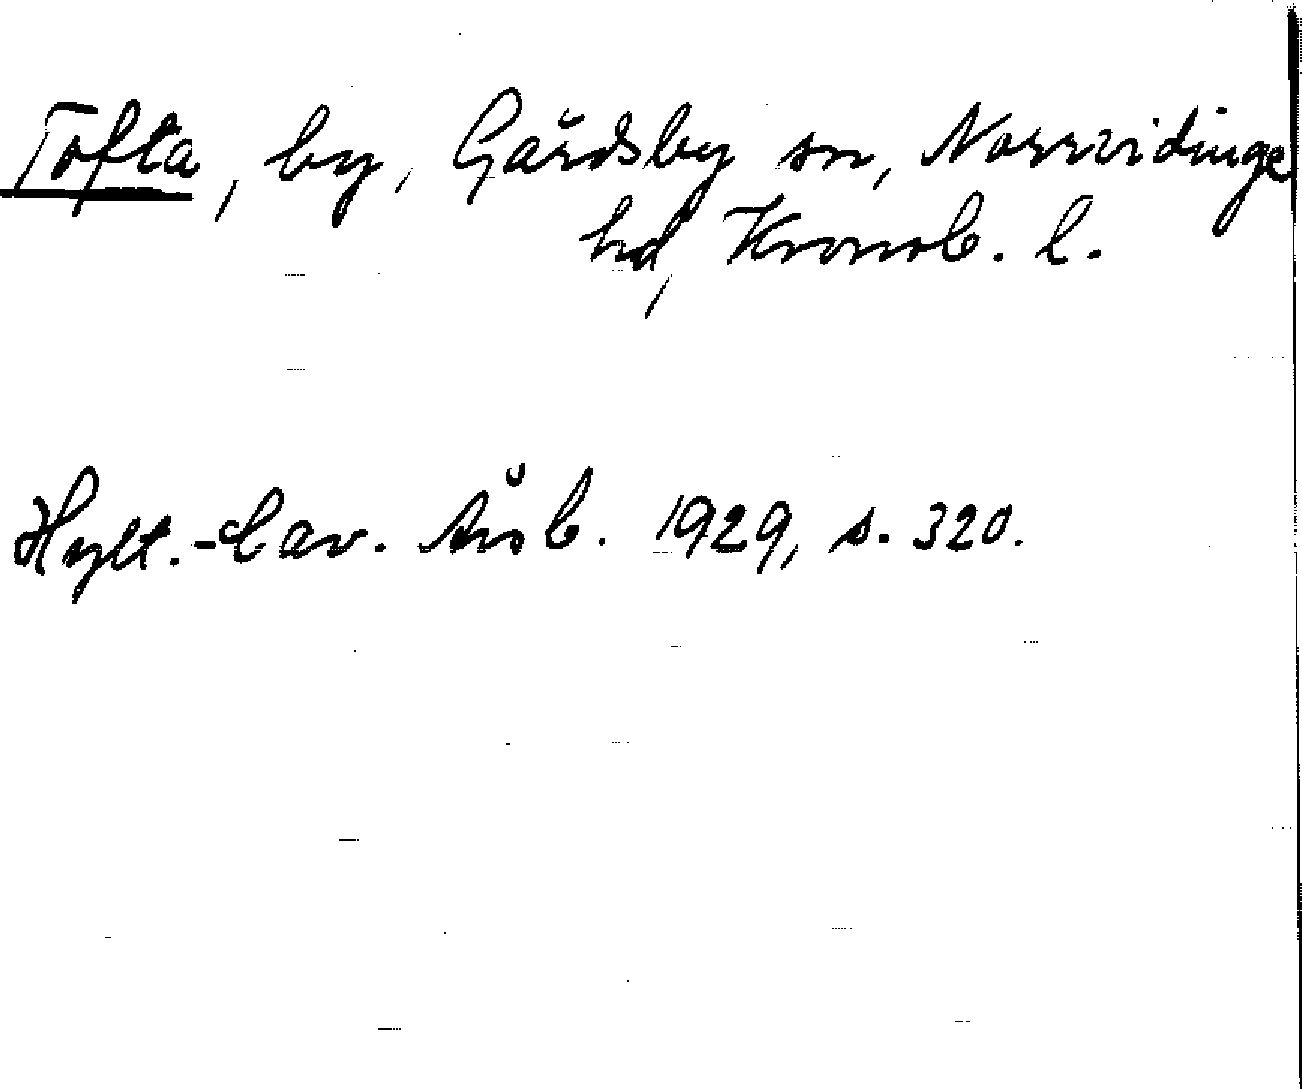 Tofta, by, Gårdsby sn, Norrvidinge
hd, Kronob. l.
Hylt.-Cav. Årsb. 1929, s. 320.